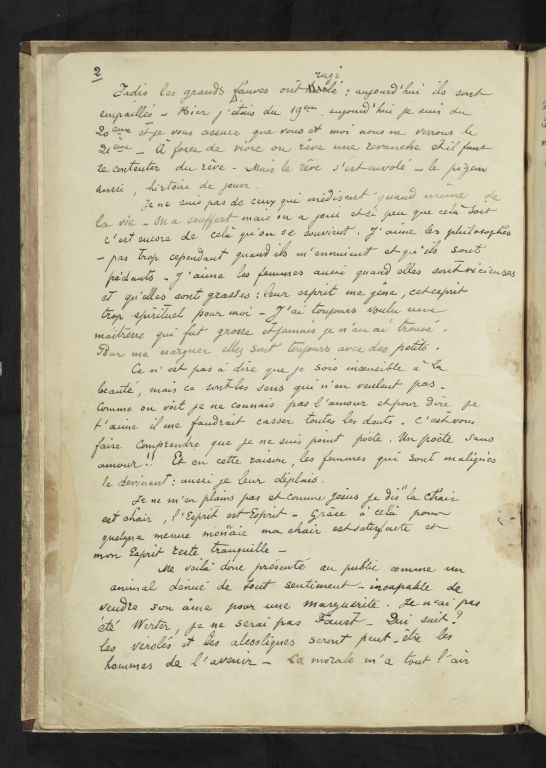 2
rugi
Jadis les grands fauves ont hurlé ; aujourd'hui ils sont
empaillés - Hier j'étais du 19em aujourd'hui je suis du
20ème et je vous assure que vous et moi nous ne verrons le
21ème - A force de vivre on rêve une revanche et il faut
se contenter du rêve - Mais le rêve s'est envolé - le pigeon
aussi, histoire de jouer.
Je ne suis pas de ceux qui médisent quand même de
la vie - On a souffert mais on a joui et si peu que cela soit
c'est encore de celà qu'on se souvient. J'aime les philosophes
- pas trop cependant quand ils m'ennuient et qu'ils sont
pédants - J'aime les femmes aussi quand elles sont vicieuses
et qu'elles sont grasses ; leur esprit me gêne, cet esprit
trop spirituel pour moi - J'ai toujours voulu une
maitresse qui fut grosse et jamais je n'en ai trouvé.
Pour me narguer elles sont toujours avec des petits.
Ce n'est pas à dire que je sois insensible à la
beauté, mais ce sont les sens qui n'en veulent pas -
Comme on voit je ne connais pas l'amour et pour dire je
t'aime il me faudrait casser toutes les dents. C'est vous
faire comprendre que je ne suis point poète. Un poète sans
amour !! Et en cette raison, les femmes qui sont malignes
le devinent : aussi je leur déplais.
Je ne m'en plains pas et comme Jésus je dis "la Chair
est chair, l'Esprit est Esprit - Grâce à celà pour
quelque menue monnaie ma chair est satisfaite et
mon Esprit reste tranquille -
Me voilà donc présenté au public comme un
animal dénué de tout sentiment - incapable de
vendre son âme pour une marguerite. Je n'ai pas
été Werter, je ne serai pas Faust - Qui sait ?
les vérolés et les alcooliques seront peut-être les
hommes de l'avenir - La morale m'a tout l'air